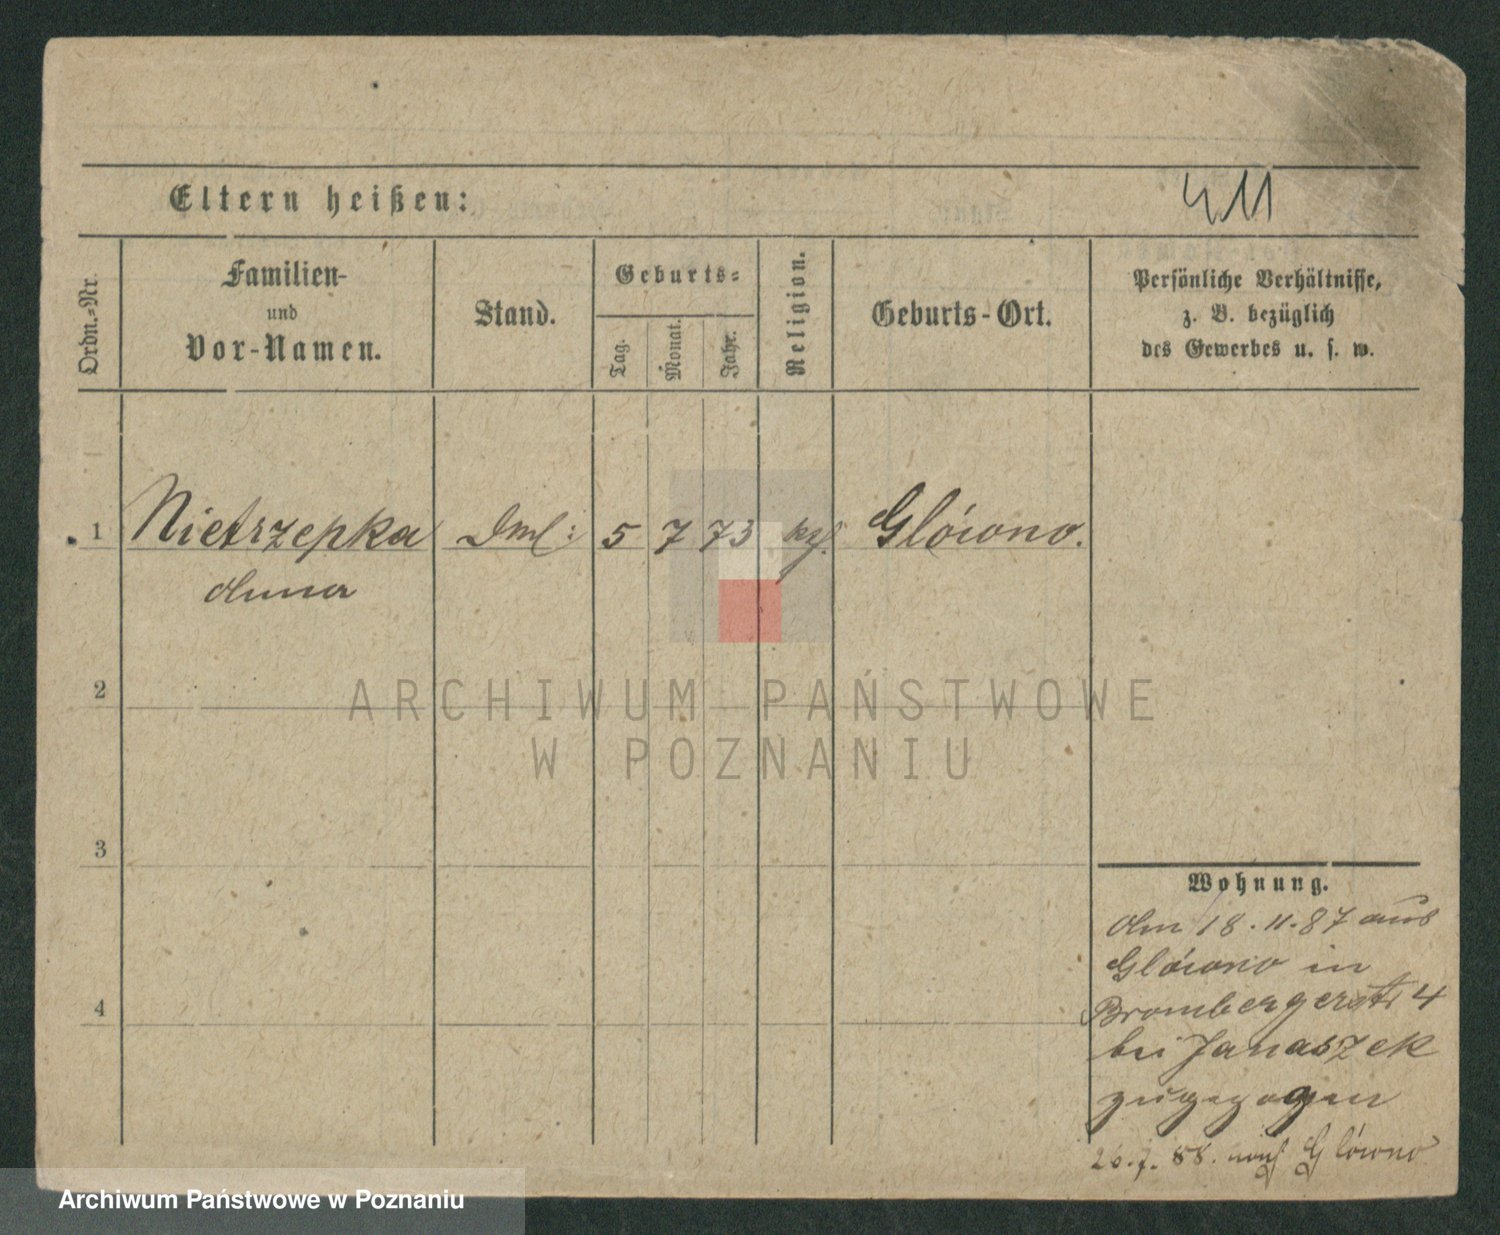 Eltern heißen:
411
Ordn.-Nr.
Familien-
und
Vor-Namen.
Stand.
Geburts-
Tag.
Monat.
Jahr.
Religion.
Geburts-Ort.
Persönliche Verhältnisse,
z. B. bezüglich
des Gewerbes u. s. w.
1 Nietrzepka 5 7 73 Glówno.
Anna
2
3
4
Wohnung.
Am 18.11.87 aus
Glówno in
Brombergerstr 4
bei Janaszek
zugezogen
20.7.88. nach Glówno
ARCHIWUM PAŃSTWOWE
W POZNANIU
Archiwum Państwowe w Poznaniu